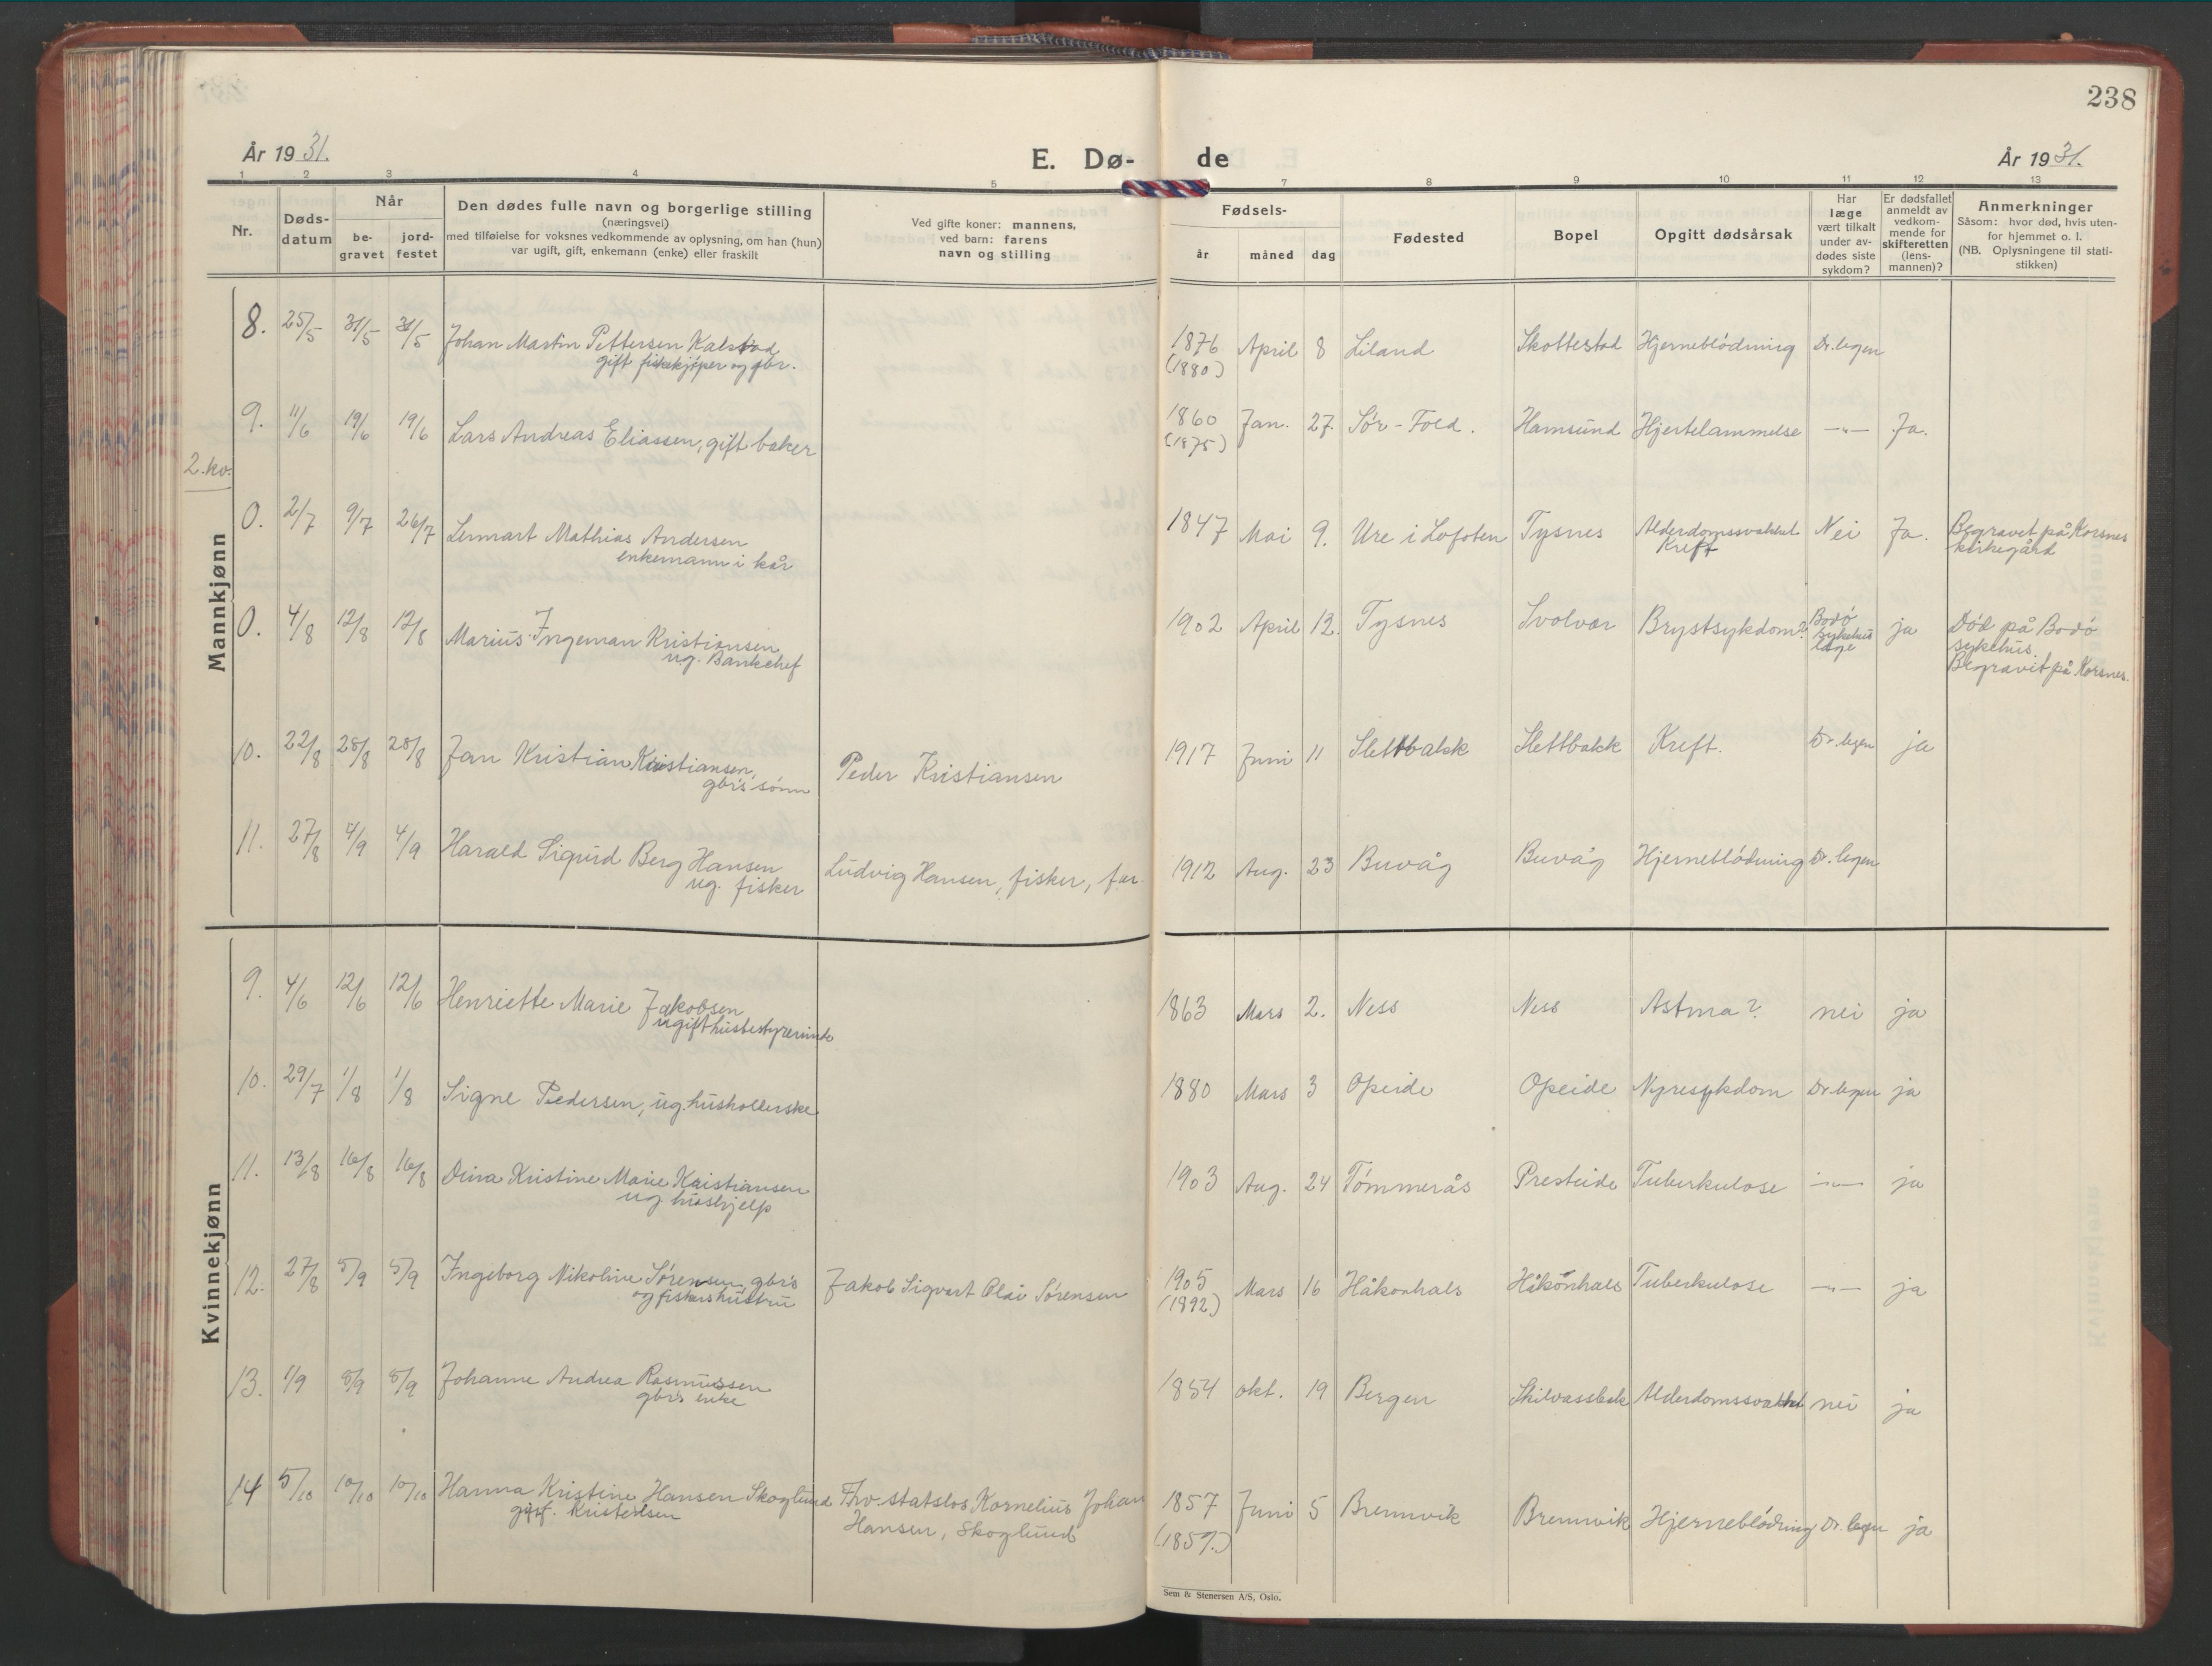 238
År 1931.
E. Dø-de
År 1931.
1 2 3 4 5 7 8 9 10 11 12 13
Nr.
Døds-
datum
Når
be-
gravet
jord-
festet
Den dødes fulle navn og borgerlige stilling
(næringsvei)
med tilføielse for voksnes vedkommende av oplysning, om han (hun)
var ugift, gift, enkemann (enke) eller fraskilt
Ved gifte koner: mannens,
ved barn: farens
navn og stilling
Fødsels-
år måned dag
Fødested
Bopel
Opgitt dødsårsak
Har
læge
vært tilkalt
under av-
dødes siste
sykdom?
Er dødsfallet
anmeldt av
vedkom-
mende for
skifteretten
(lens-
mannen)?
Anmerkninger
Såsom: hvor død, hvis uten-
for hjemmet o. l.
(NB. Oplysningene til stati-
stikken)
Mannkjønn
8. 25/5 31/5 31/5 Johan Martin Pettersen Kalstad
gift fiskekjøper og gbr.
1876 April 8 Liland Skottestad Hjerneblödning Dr. legen
(1880)
9. 11/6 19/6 19/6 Lars Andreas Eliassen, gift baker
1860 Jan. 27. Sör-Fold. Hamsund Hjertelammelse —"— Ja.
(1875)
2. kv.
0. 2/7 9/7 26/7 Lennart Mathias Andersen
enkemann i kår
1847 Mai 9. Ure i Lofoten Tysnes Alderdomssvakhet Nei Ja. Begravet på Korsnes
Kreft kirkegård
0. 4/8 12/8 12/8 Marius Ingeman Kristiansen
ug. Bankchef
1902 April 12. Tysnes Svolvær Brystsykdom? Bodö
sykehus
læge
ja
Död på Bodö
sykehus.
Begravet på Korsnes.
10. 22/8 28/8 28/8 Jan Kristian Kristiansen,
gbr's sönn
Peder Kristiansen
1917 Juni 11 Slettbakk Slettbakk Kreft. Dr. legen ja
11. 27/8 4/9 4/9 Harald Sigurd Berg Hansen
ug. fisker
Ludvig Hansen, fisker, far.
1912 Aug. 23 Buvåg Buvåg Hjerneblödning Dr. legen
Kvinnekjønn
9. 4/6 12/6 12/6 Henriette Marie Jakobsen
ugift husbestyrerinde
1863 Mars 2. Ness Ness Astma? nei ja
10. 29/7 1/8 1/8 Signe Pedersen, ug. husholderske
1880 Mars 3 Opeide Opeide Nyresykdom Dr. legen ja
11. 13/8 16/8 16/8 Dina Kristine Marie Kristiansen
ug hushjelp
1903 Aug. 24 Tömmerås Presteide Tuberkulose —"— ja
12. 27/8 5/9 5/9 Ingeborg Nikoline Sörensen, gbr's
og fiskers hustru
Jakob Sigvart Olai Sörensen
1905 Mars 16 Håkonhals Håkonhals Tuberkulose —"— ja
(1892)
13. 1/9 8/9 8/9 Johanne Andrea Rasmussen
gbr's enke
1854 okt. 19 Bergen Skilvassbakk Alderdomssvakhet nei ja
14 5/10 10/10 10/10 Hanna Kristine Hansen Skoglund
gift. Kristensen
Fhv. statslos Kornelius Johan
Hansen, Skoglund
1857 Juni 5 Bremnvik Bremnvik Hjerneblödning Dr. legen ja
(1857.)
Sem & Stenersen A/S, Oslo.